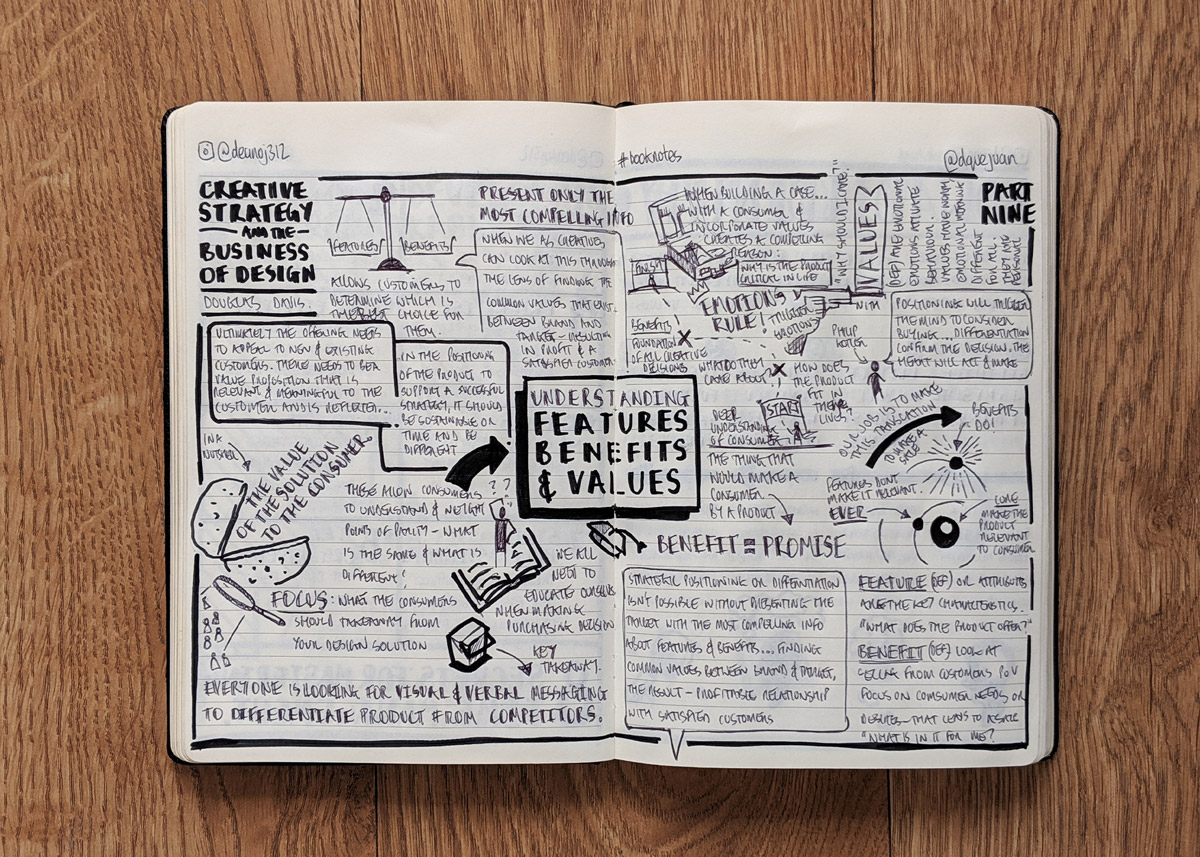 @deanoj312
CREATIVE
STRATEGY
AND THE
BUSINESS
OF DESIGN
DOUGLAS DAVIS.
FEATURES
BENEFITS
ALLOWS CUSTOMERS TO
DETERMINE WHICH IS
THE BEST CHOICE FOR
THEM.
PRESENT ONLY THE
MOST COMPELLING INFO
WHEN WE AS CREATIVES
CAN LOOK AT THIS THROUGH
THE LENS OF FINDING THE
COMMON VALUES THAT EXIST
BETWEEN BRAND AND
TARGET - RESULTING
IN PROFIT & A
SATISFIED CUSTOMER
ULTIMATELY THE OFFERING NEEDS
TO APPEAL TO NEW & EXISTING
CUSTOMERS. THERE NEEDS TO BE A
VALUE PROPOSITION THAT IS
RELEVANT & MEANINGFUL TO THE
CUSTOMER AND IS REFLECTED...
IN THE POSITIONING
OF THE PRODUCT TO
SUPPORT A SUCCESSFUL
STRATEGY, IT SHOULD
BE SUSTAINABLE ON
TIME AND BE
DIFFERENT
IN A
NUTSHELL
THE VALUE
OF THE SOLUTION
TO THE CONSUMER
THESE ALLOW CONSUMERS
TO UNDERSTAND & WEIGHT
POINTS OF PARITY - WHAT
IS THE SAME & WHAT IS
DIFFERENT?
? ?
WE ALL
NEED TO
EDUCATE OURSELVES
WHEN MAKING
PURCHASING DECISION
FOCUS: WHAT THE CONSUMERS
SHOULD TAKEAWAY FROM
YOUR DESIGN SOLUTION
KEY
TAKEAWAY.
EVERYONE IS LOOKING FOR VISUAL & VERBAL MESSAGING
TO DIFFERENTIATE PRODUCT FROM COMPETITORS.
UNDERSTANDING
FEATURES
BENEFITS
& VALUES
#booknotes
@dquejuan
PART
NINE
WHEN BUILDING A CASE...
WITH A CONSUMER &
INCORPORATE VALUES
CREATES A COMPELLING
REASON:
WHY IS THE PRODUCT
CRITICAL IN LIFE
FINISH
EMOTIONS
RULE!
TRIGGER
EMOTIONS
WITH
"WHY SHOULD I CARE?"
VALUES
(DEF) ARE EMOTIONAL
EMOTIONS ACTIVATE
BEHAVIOUR.
VALUES HAVE
EMOTIONAL MEANING
FOR ALL.
THEY ARE
PERSONAL
BENEFITS
FOUNDATION
OF ALL CREATIVE
DECISIONS
WHAT DO THEY
CARE ABOUT?
HOW DOES
THE PRODUCT
FIT IN
THEIR
LIVES?
PHILIP
KOTLER
POSITIONING WILL TRIGGER
THE MIND TO CONSIDER
BUYING... DIFFERENTIATION
CONFIRM THE DECISION. THE
HEART WILL ACT & MAKE
START
DEEP
UNDERSTANDING
OF CONSUMER
THE THING THAT
WOULD MAKE A
CONSUMER
BY A PRODUCT
OUR JOB IS TO MAKE
THIS TRANSLATION
TO MAKE A
SALE
BENEFITS
DO!
FEATURES DON'T
MAKE IT RELEVANT.
EVER
CORE
MAKE THE
PRODUCT
RELEVANT
TO CONSUMER
BENEFIT = PROMISE
STRATEGIC POSITIONING OR DIFFENTIATION
ISN'T POSSIBLE WITHOUT PRESENTING THE
TARGET WITH THE MOST COMPELLING INFO
ABOUT FEATURES & BENEFITS... FINDING
COMMON VALUES BETWEEN BRAND & TARGET,
THE RESULT - PROFITABLE RELATIONSHIP
WITH SATISFIED CUSTOMERS
FEATURE (DEF) OR ATTRIBUTES
ARE THE KEY CHARACTERISTICS.
"WHAT DOES THE PRODUCT OFFER?"
BENEFIT (DEF) LOOK AT
SELLAR FROM CUSTOMERS POV
FOCUS ON COMSUMER NEEDS OR
DESIRES - THAT LEADS TO A SALE
"WHAT IS IN IT FOR ME?